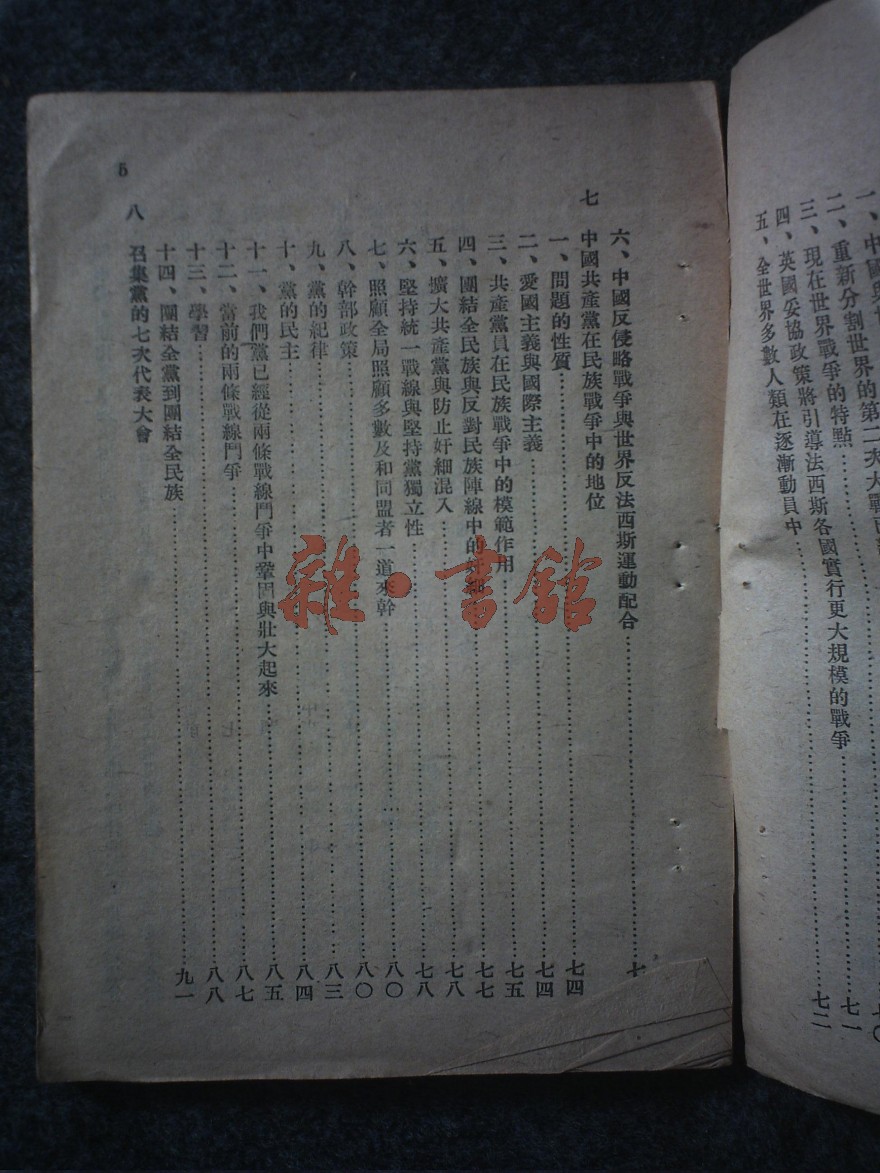 一、中國與世
二、重新分割世界的第二次大戰已
三、現在世界戰爭的特點……七〇
四、英國妥協政策將引導法西斯各國實行更大規模的戰爭……七一
五、全世界多數人類在逐漸動員中……七二
六、中國反侵略戰爭與世界反法西斯運動配合……七
七 中國共產黨在民族戰爭中的地位
一、問題的性質……七四
二、愛國主義與國際主義……七四
三、共產黨員在民族戰爭中的模範作用……七五
四、團結全民族與反對民族陣線中的奸細……七七
五、擴大共產黨與防止奸細混入……七八
六、堅持統一戰線與堅持黨獨立性……七八
七、照顧全局照顧多數及和同盟者一道來幹……八〇
八、幹部政策……八〇
九、黨的紀律……八三
十、黨的民主……八四
十一、我們黨已經從兩條戰線鬥爭中鞏固與壯大起來……八五
十二、當前的兩條戰線鬥爭……八七
十三、學習……八八
十四、團結全黨到團結全民族……九一
八 召集黨的七次代表大會
5
雜·書館